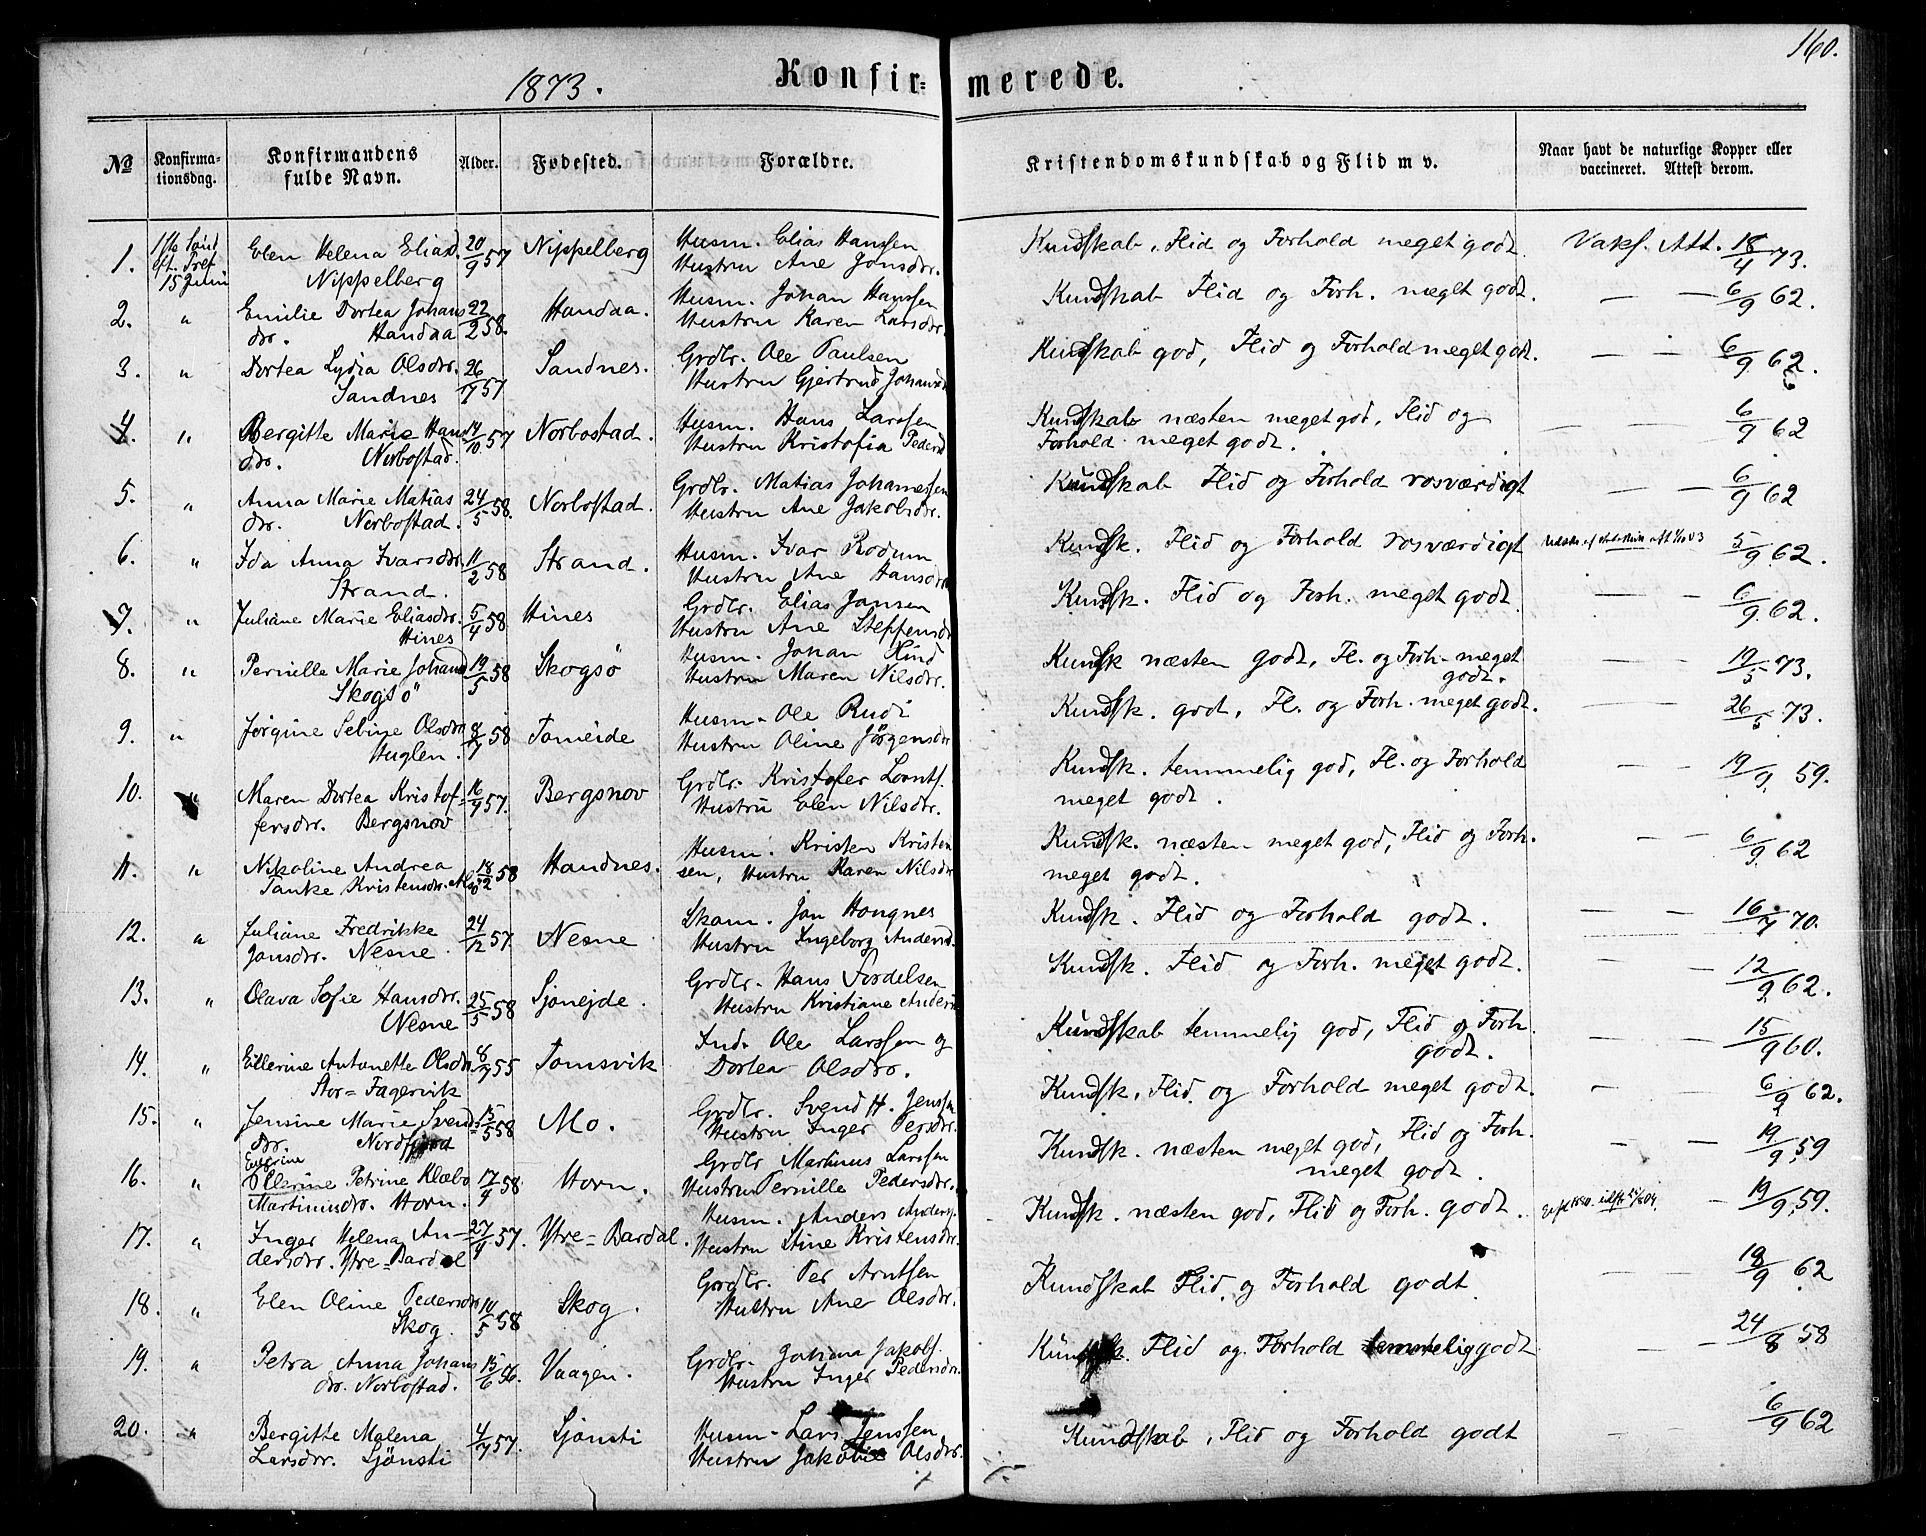 160.
1873. Konfir= merede.
No Konfirma-tionsdag. Konfirmandens fulde Navn. Alder. Fødested. Forældre. Kristendomskundskab og Flid m v. Naar havt de naturlige Kopper eller vaccineret. Attest derom.
1. 15 Juni Elen Helena Eliasd. 20/9 57 Nippelberg Husm. Elias Hanssen Kundskab, Flid og Forhold meget godt. Vaks. Att. 18/4 73.
Nippelberg Hustru Ane Jonsdr.
2. " Emilie Dortea Johans 22/2 58. Handaa. Husm. Johan Hanssen Kundskab Flid og Forh. meget godt. — — 6/9 62.
dr. Handaa Hustru Karen Larsdr.
3. " Dortea Lydia Olsdr. 26/7 57 Sandnes. Grdbr. Ole Paulsen Kundskab god, Flid og Forhold meget godt. — — 6/9 62.
Sandnes Hustru Gjertrud Johansd
4. " Bergitte Marie Hans 14/10 57 Norbostad. Husm. Hans Larssen Kundskab næsten meget god, Flid og — — 6/9 62
dr. Norbostad. Hustru Kristofia Pedersd Forhold meget godt.
5. " Anna Marie Matias 24/5 58. Norbostad. Grdbr. Matias Johanessen Kundskab Flid og Forhold rosværdigt — — 6/9 62
dr. Norbostad. Hustru Ane Jakobsdr.
6. " Ida Anna Ivarsdr. 11/2 58 Strand. Husm. Ivar Rodum Kundsk. Flid og Forhold rosværdigt 5/9 62.
Strand. Hustru Ane Hansdr
7. " Juliane Marie Eliasdr. 5/4 58 Hines Grdbr. Elias Jansen Kundsk. Flid og Forh. meget godt. — — 6/9 62.
Hines Hustru Ane Steffensd
8. " Pernille Marie Johansd 19/5 58 Skogsö Husm. Johan Hind Kundsk næsten godt, Fl. og Forh. meget — — 19/5 73.
Skogsö Hustru Maren Nilsdr. godt.
9. " Jørgine Sebine Olsdr. 8/7 58 Tomeide Husm. Ole Rudi Kundsk. godt, Fl. og Forh. meget godt. 26/5 73.
Huglen. Hustru Oline Jørgensdr
10. " Maren Dortea Kristof= 16/9 57. Bergsnov Grdbr. Kristofer Lorents. Kundsk. temmelig god, Fl. og Forhold 19/9 59.
fersdr. Bergsnov Hustru Elen Nilsdr. meget godt.
11. " Nikoline Andrea 18/2 58 Handnes. Husm. Kristen Kristen Kundsk. næsten meget god, Flid og Forh. — — 6/9 62
Tanke Kristensdr. sen, Hustru Karen Nilsdr meget godt.
12. " Juliane Fredrikke 24/12 57. Nesne Skom. Jon Hougnes Kundsk. Flid og Forhold godt. — — 16/7 70.
Jonsdr. Nesne. Hustru Ingeborg Andersd.
13. " Olava Sofie Hansdr. 25/5 58 Sjonejde. Grdbr. Hans Fordelsen Kundsk. Flid og Forh. meget godt. — — 12/9 62.
Nesne Hustru Kristiane Anders
14. " Ellerine Antonette Olsdr. 8/7 55 Tomsvik Ind. Ole Larssen og Kundskab temmelig god, Flid og Forh. — — 15/9 60.
Stor=Fagervik Dortea Olsdr. godt.
15. " Jensine Marie Svends= 15/5 58 Mo. Grdbr. Svend H. Jenssen Kundsk. Flid og Forhold meget godt. — — 6/9 62.
dr. Nordfjord Hustru Inger Persdr.
16. " Ellerine Petrine Klæbo 17/4 58. Horn. Grdbr Martinus Larssen Kundsk. næsten meget god, Flid og Forh. — — 19/9 59
Martinusdr. Horn. Hustru Pernille Pedersdr. meget godt.
17. " Inger Helena An= 27/4 57. Ytre=Bardal. Husm. Anders Anders. Kundsk. næsten god, Flid og Forh. godt. — 19/9 59.
dersdr. Ytre=Bardal Hustru Stine Kristensdr.
18. " Elen Oline Pedersdr 10/5 58 Skog. Grdbr. Per Arntsen Kundskab Flid og Forhold godt. — — 18/9 62
Skog. Hustru Ane Olsdr.
19. " Petra Anna Johans 15/6 56. Vaagen. Grdbr. Johan Jakobs. Kundsk. Flid og Forhold temmelig godt — — 24/8 58
dr. Norbostad. Hustru Inger Pedersdr.
20. " Bergitte Malena 4/7 57. Sjönsti Husm. Lars Jenssen Kundskab, Flid og Forhold godt — — 6/9 62
Larsdr. Sjönsti Hustru Jakobine Olsdr.